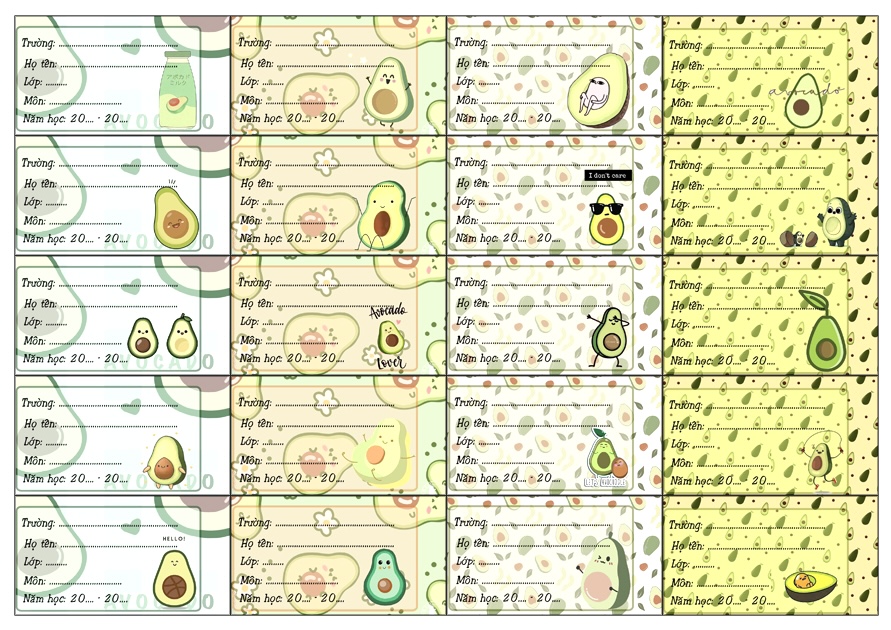 Trường: ..............................
Họ tên: ..............................
Lớp: ......
アボカド
ミルク
Môn: ..................
Năm học: 20.... - 20....
AVOCADO
Trường: ..............................
Họ tên: ..............................
Lớp: ......
Môn: ..................
Năm học: 20.... - 20....
Trường: ..............................
Họ tên: ..............................
Lớp: ......
Môn: ..................
Năm học: 20.... - 20....
Trường: ..............................
Họ tên: ..............................
Lớp: ......
avocado
Môn: ..................
Năm học: 20.... - 20....
Trường: ..............................
Họ tên: ..............................
Lớp: ......
Môn: ..................
Năm học: 20.... - 20....
AVOCADO
Trường: ..............................
Họ tên: ..............................
Lớp: ......
Môn: ..................
Năm học: 20.... - 20....
Trường: ..............................
I don't care
Họ tên: ..............................
Lớp: ......
Môn: ..................
Năm học: 20.... - 20....
Trường: ..............................
Họ tên: ..............................
Lớp: ......
Môn: ..................
Năm học: 20.... - 20....
Trường: ..............................
Họ tên: ..............................
Lớp: ......
Môn: ..................
Năm học: 20.... - 20....
AVOCADO
Trường: ..............................
Họ tên: ..............................
Avocado
Lớp: ......
Môn: ..................
Năm học: 20.... - 20....
Lover
Trường: ..............................
Họ tên: ..............................
Lớp: ......
Môn: ..................
Năm học: 20.... - 20....
Trường: ..............................
Họ tên: ..............................
Lớp: ......
Môn: ..................
Năm học: 20.... - 20....
Trường: ..............................
Họ tên: ..............................
Lớp: ......
Môn: ..................
Năm học: 20.... - 20....
AVOCADO
Trường: ..............................
Họ tên: ..............................
Lớp: ......
Môn: ..................
Năm học: 20.... - 20....
Trường: ..............................
Họ tên: ..............................
Lớp: ......
Môn: ..................
Năm học: 20.... - 20....
Trường: ..............................
Họ tên: ..............................
Lớp: ......
Môn: ..................
Năm học: 20.... - 20....
Trường: ..............................
HELLO!
Họ tên: ..............................
Lớp: ......
Môn: ..................
Năm học: 20.... - 20....
AVOCADO
Trường: ..............................
Họ tên: ..............................
Lớp: ......
Môn: ..................
Năm học: 20.... - 20....
Trường: ..............................
Họ tên: ..............................
Lớp: ......
Môn: ..................
Năm học: 20.... - 20....
Trường: ..............................
Họ tên: ..............................
Lớp: ......
Môn: ..................
Năm học: 20.... - 20....